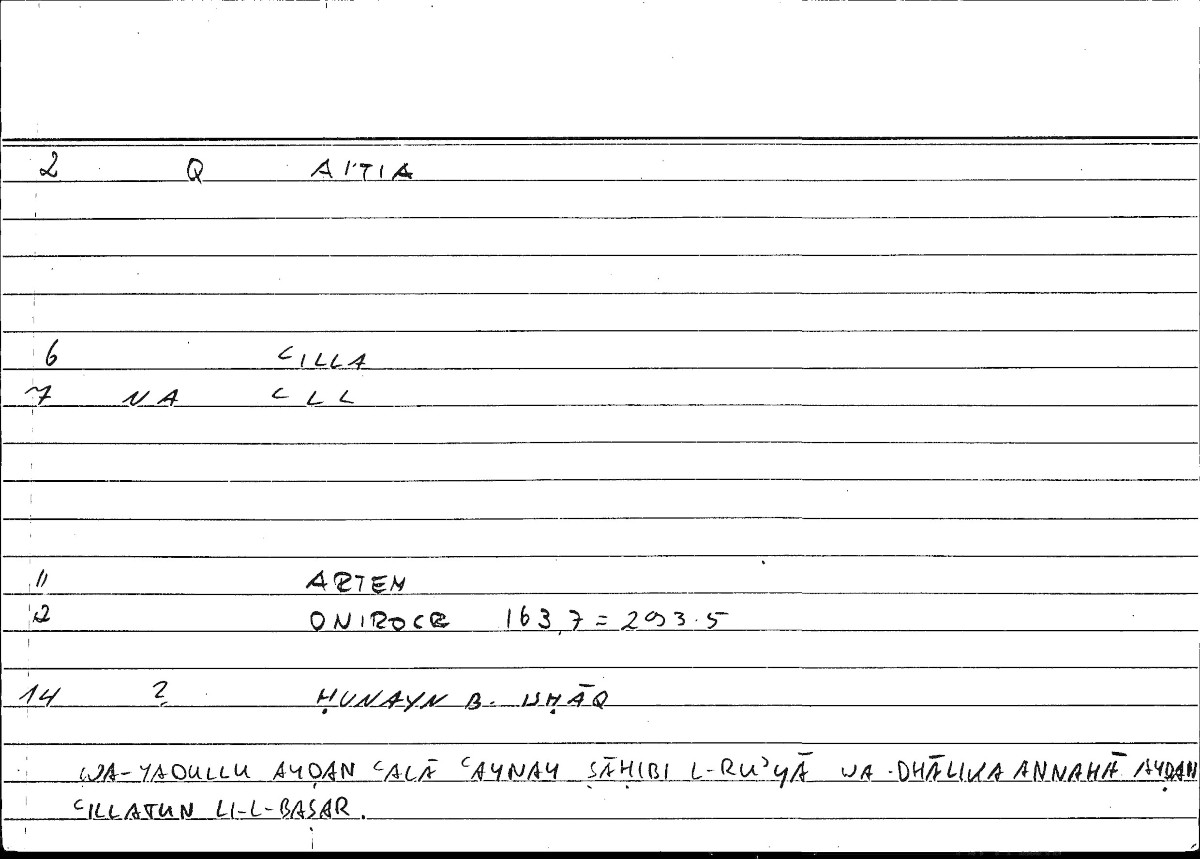 2 Q AITIA
6 ʿILLA
7 NA ʿLL
11 ARTEM
12 ONIROCR 163,7 = 293.5
14 ? ḤUNAYN B. ISḤĀQ
WA-YADULLU AYḌAN ʿALĀ ʿAYNAY ṢĀḤIBI L-RUʾYĀ WA-DHĀLIKA ANNAHĀ AYḌAN
ʿILLATUN LI-L-BAṢAR.